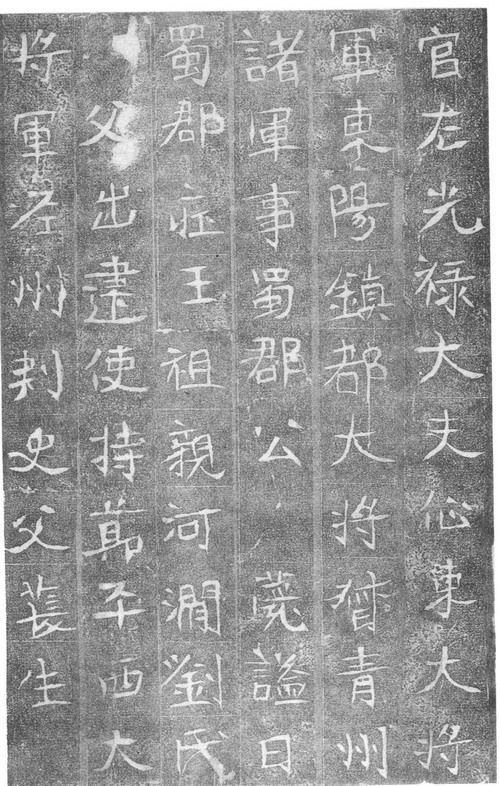 官左光禄大夫東大將
軍東陽鎮都大將督青州
諸軍事蜀郡公薨謚曰
蜀郡莊王祖親河澗劉氏
父出建使持節平西大
將軍州刾史父萇生